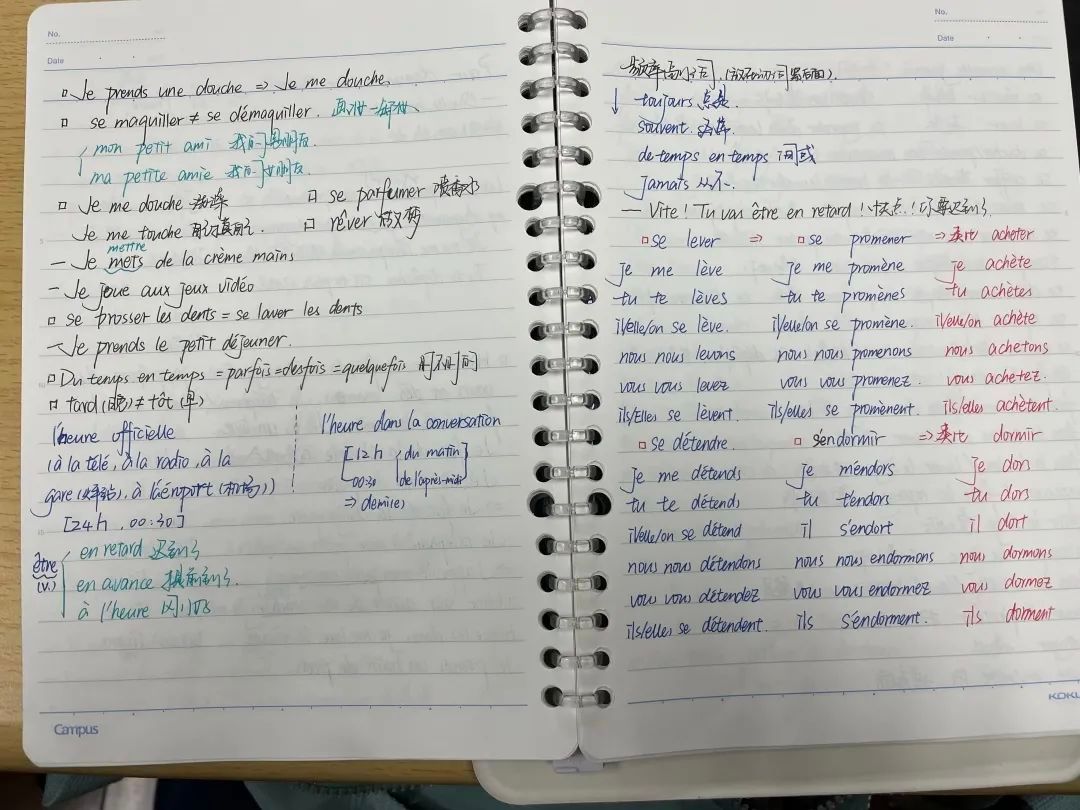 No.
Date
□ Je prends une douche ⇒ Je me douche.
□ se maquiller ≠ se démaquiller.
mon petit ami 我的男朋友
ma petite amie 我的女朋友.
□ Je me douche □ se parfumer 喷香水
Je me touche □ rêver 做梦
mettre
— Je mets de la crème mains
— Je joue aux jeux vidéo
□ se prosser les dents = se laver les dents
— Je prends le petit déjeuner.
□ Du temps en temps = parfois = desfois = quelquefois 时不时
□ tard (晚) ≠ tôt (早)
l'heure officielle
(à la télé, à la radio, à la
gare (火车站), à l'aéroport (机场))
[24h, 00:30]
l'heure dans la conversation
[12h du matin]
00:30 de l'après-midi
⇒ demie
être en retard 迟到了
(v.) en avance 提前到了.
à l'heure
Campus
No.
Date
频率高的词. (放在动词后面).
↓ toujours 总是.
souvent 经常.
de temps en temps 间或
jamais 从不.
— Vite! Tu vas être en retard! 快点! 你要迟到了
□ se lever ⇒ □ se promener ⇒ 类比 acheter
je me lève je me promène je achète
tu te lèves tu te promènes tu achètes
il/elle/on se lève. il/elle/on se promène. il/elle/on achète
nous nous levons nous nous promenons nous achetons
vous vous levez vous vous promenez. vous achetez.
ils/Elles se lèvent. ils/elles se promènent. ils/elles achètent.
□ se détendre. □ s'endormir ⇒ 类比 dormir
je me détends je m'endors je dors
tu te détends tu t'endors tu dors
il/elle/on se détend il s'endort il dort
nous nous détendons nous nous endormons nous dormons
vous vous détendez vous vous endormez vous dormez
ils/elles se détendent. ils s'endorment. ils dorment